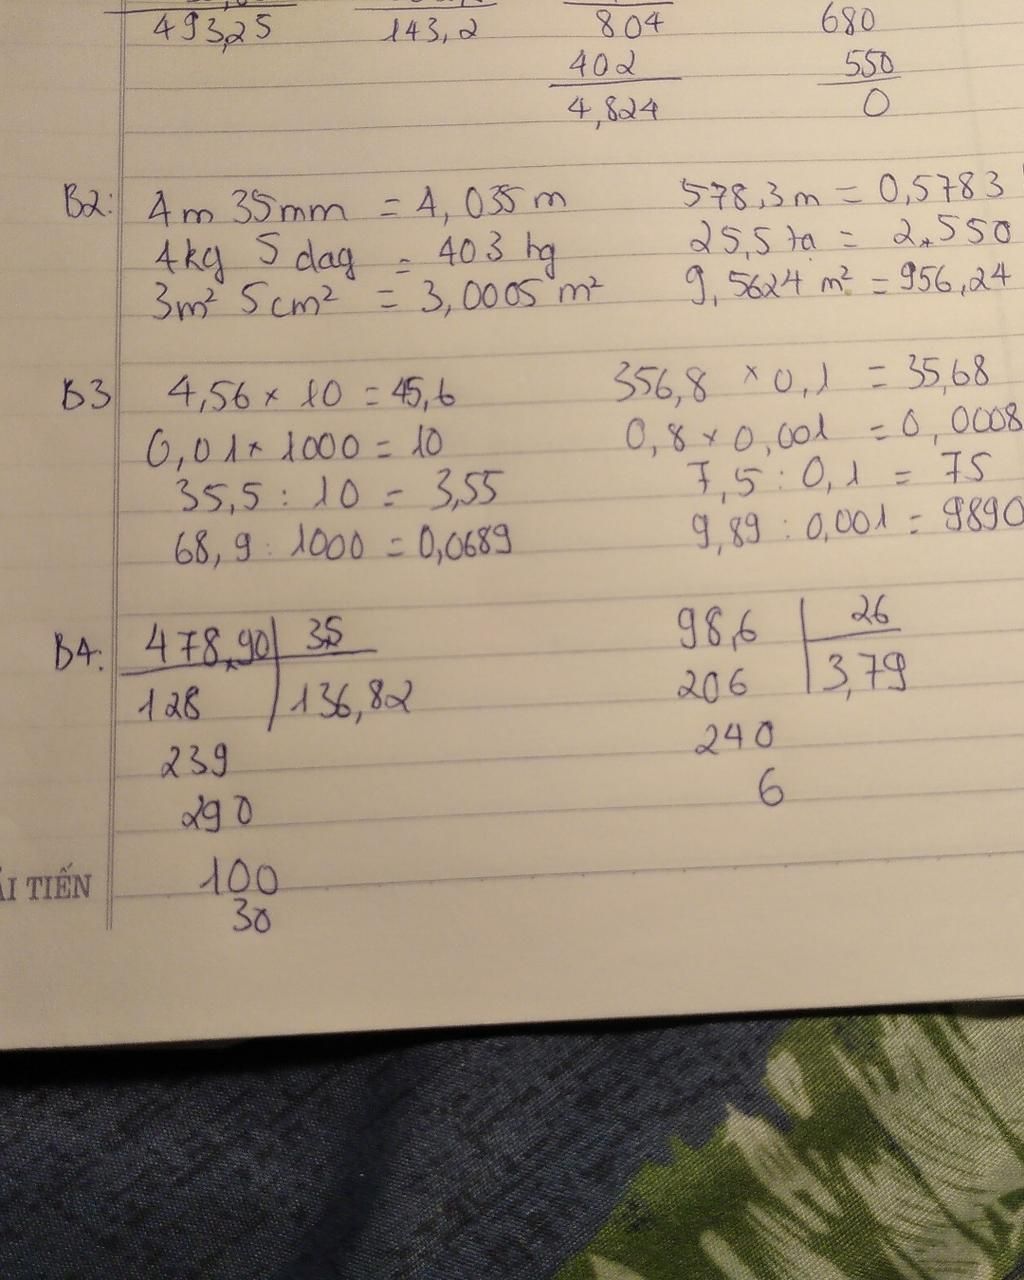 493,25 143,2 804 680
402 550
4,824 0
B2: 4m 35mm = 4,035 m 578,3 m = 0,5783
4kg 5 dag = 403 hg 25,5 ta = 2,550
3m² 5cm² = 3,0005 m² 9,5624 m² = 956,24
B3 4,56 × 10 = 45,6 356,8 × 0,1 = 35,68
0,01 × 1000 = 10 0,8 × 0,001 = 0,0008
35,5 : 10 = 3,55 7,5 : 0,1 = 75
68,9 : 1000 = 0,0689 9,89 : 0,001 = 9890
B4: 478,90 3,5 98,6 26
128 136,82 206 3,79
239 240
290 6
100
ẢI TIẾN
30